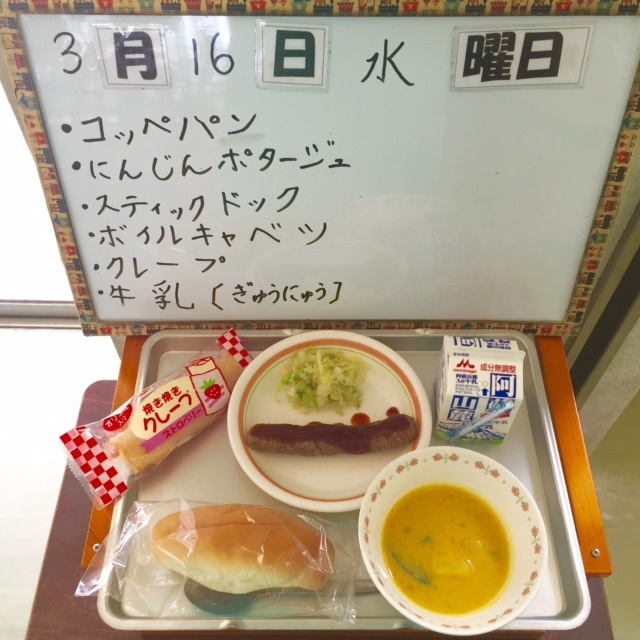 3月16日 水 曜日
・コッペパン
・にんじんポタージュ
・スティックドック
・ボイルキャベツ
・クレープ
・牛乳〔ぎゅうにゅう〕
焼き焼き
クレープ
ストロベリー
成分無調整